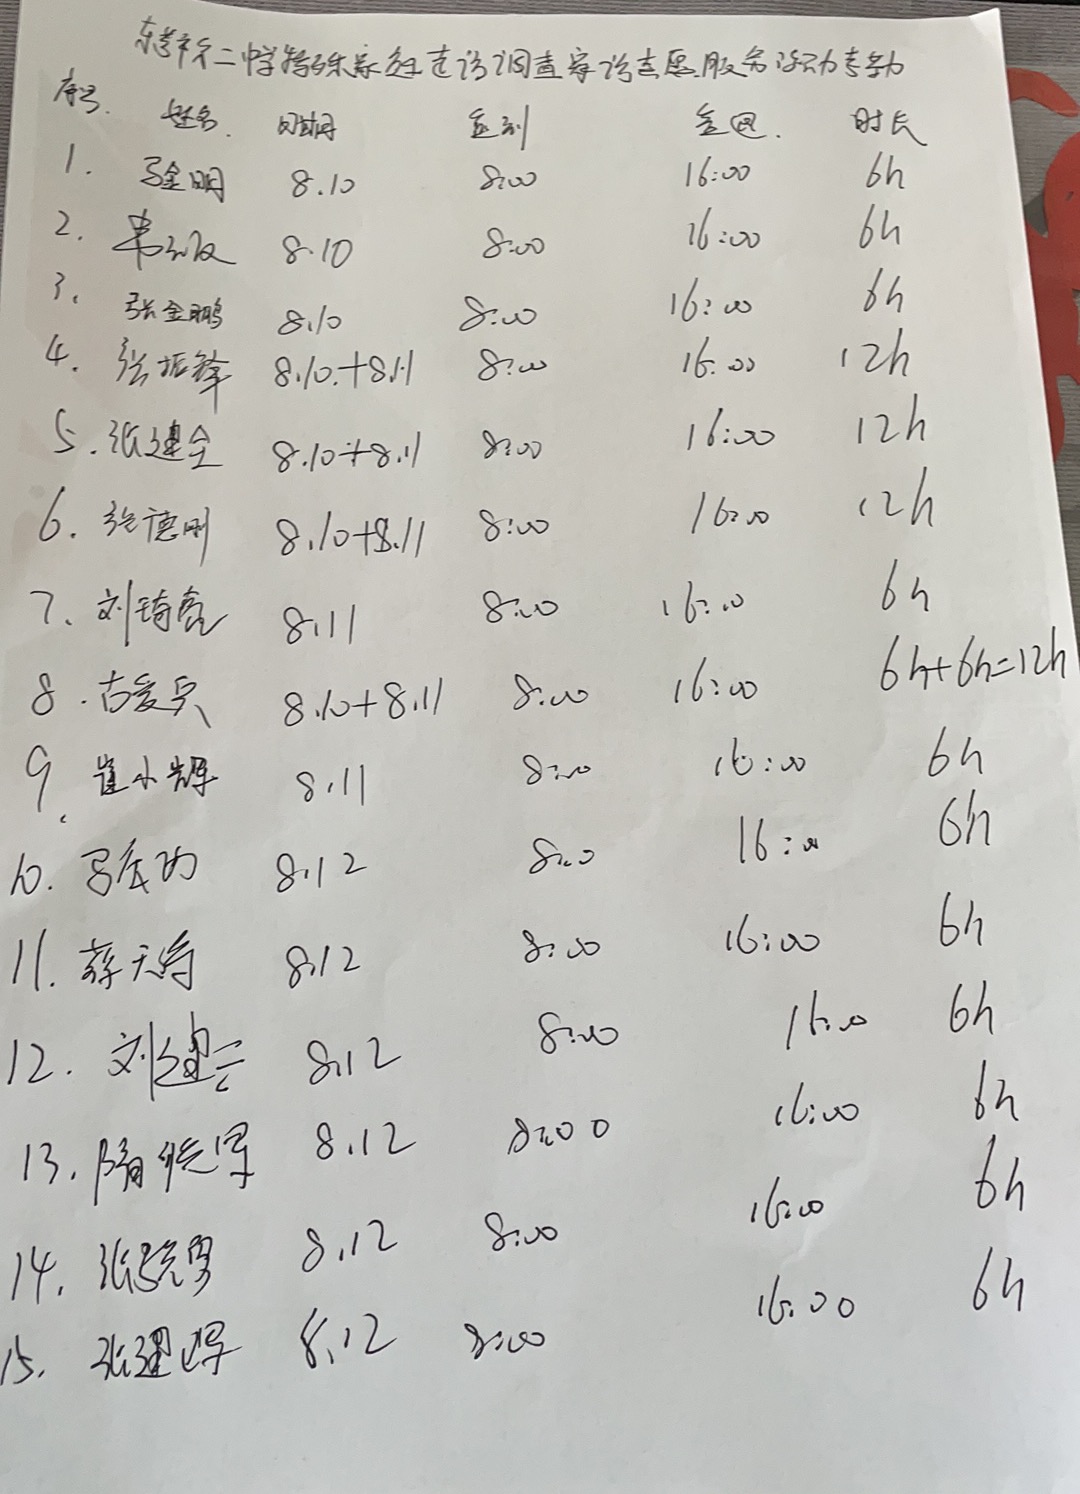 第二中学特殊家庭走访调查家访志愿服务活动考勤
序号 姓名 日期 签到 签退 时长
1. 金明 8.10 8:00 16:00 6h
2. 8.10 8:00 16:00 6h
3. 张金鹏 8.10 8:00 16:00 6h
4. 张振锋 8.10.+8.11 8:00 16:00 12h
5. 张建全 8.10+8.11 8:00 16:00 12h
6. 张德刚 8.10+8.11 8:00 16:00 12h
7. 刘琦亮 8.11 8:00 16:00 6h
8. 古爱兵 8.10+8.11 8:00 16:00 6h+6h=12h
9. 崔小辉 8.11 8:00 16:00 6h
10. 8.12 8:00 16:00 6h
11. 薛天 8.12 8:00 16:00 6h
12. 刘建云 8.12 8:00 16:00 6h
13. 隋 军 8.12 8:00 16:00 6h
14. 张 勇 8.12 8:00 16:00 6h
15. 张建军 8.12 8:00 16:00 6h